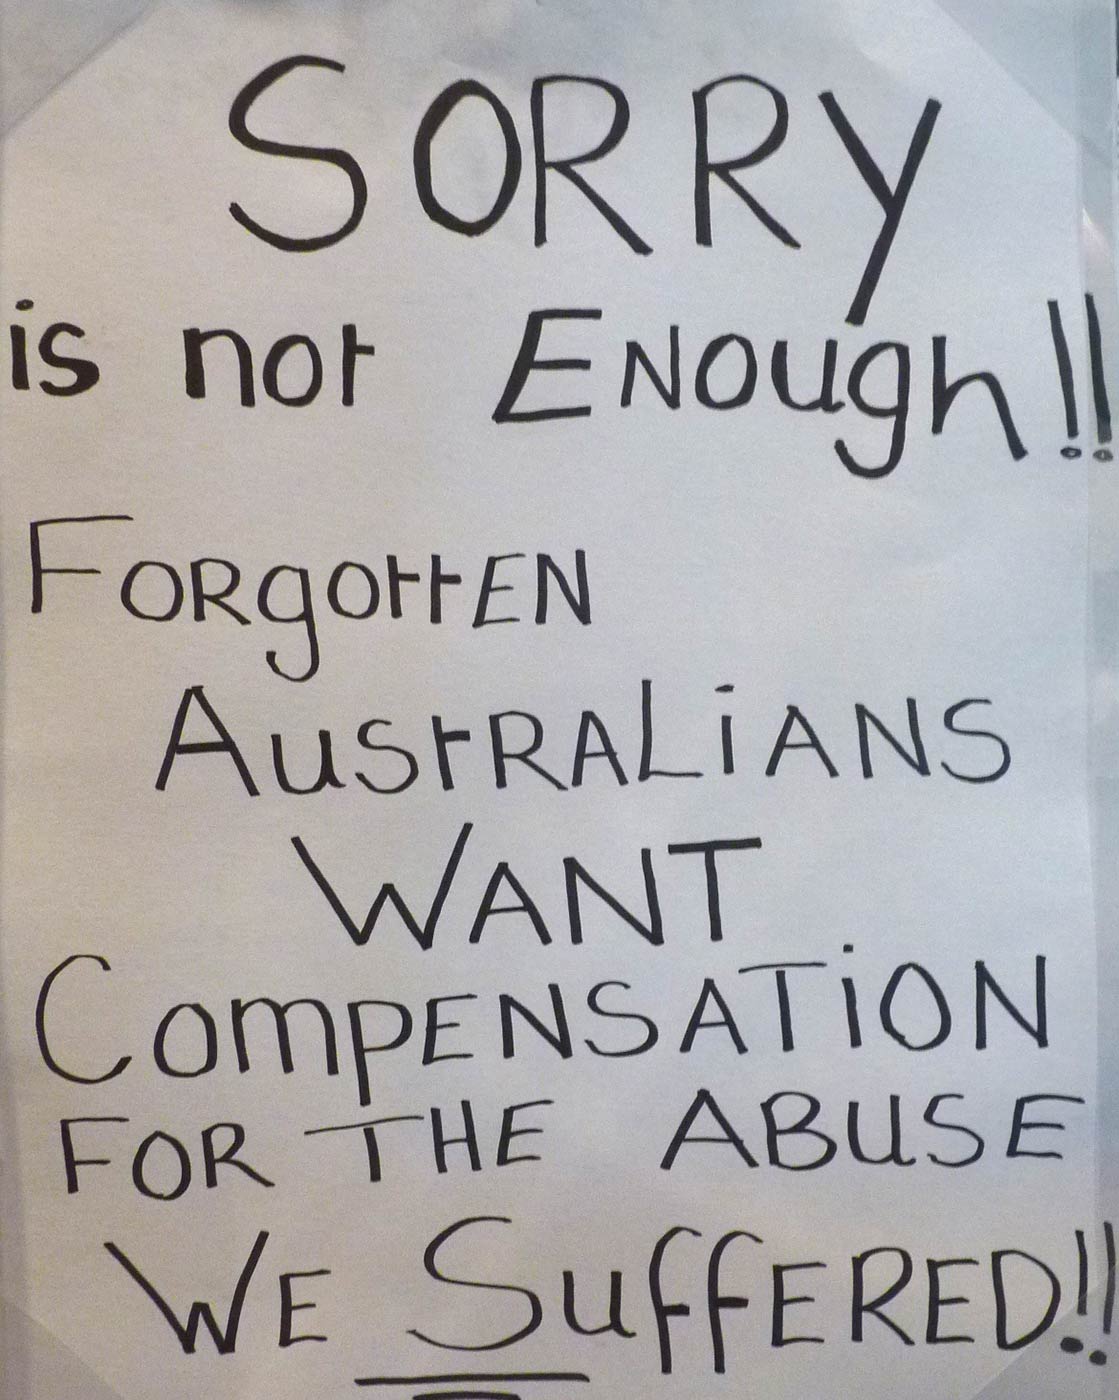 SORRY
is not Enough!!
Forgotten
Australians
Want
Compensation
For the Abuse
We Suffered!!